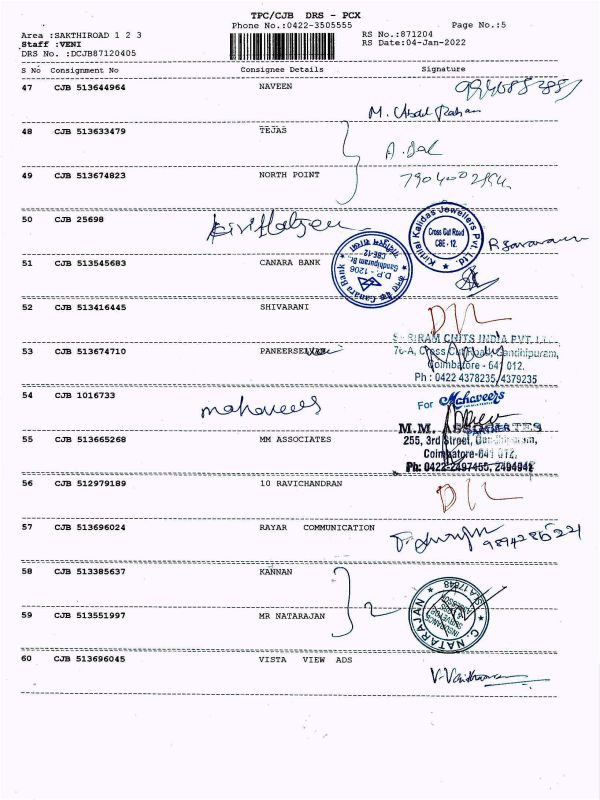 TPC/CJB DRS - PCX
Phone No.:0422-3505555 Page No.:5
Area :SAKTHIROAD 1 2 3 RS No.:871204
Staff :VENI RS Date:04-Jan-2022
DRS No. :DCJB87120405
S No Consignment No Consignee Details Signature
47 CJB 513644964 NAVEEN
M. Abdul Rahan
48 CJB 513633479 TEJAS
49 CJB 513674823 NORTH POINT
50 CJB 25698
Kirtilal Kalidas Jewellers Pvt. Ltd.
Cross Cut Road
CBE - 12.
51 CJB 513545683 CANARA BANK
Canara Bank
D.P - 1206
Gandhipuram Br
CBE-12
52 CJB 513416445 SHIVARANI
53 CJB 513674710 PANEERSELVAM
SHRIRAM CHITS INDIA PVT. LTD.,
76-A, Cross Cut Road, Gandhipuram,
Coimbatore - 641 012.
Ph : 0422 4378235, 4379235
54 CJB 1016733
mahaveers
For Mahaveers
55 CJB 513665268 MM ASSOCIATES
M.M. ASSOCIATES
255, 3rd Street, Gandhipuram,
Coimbatore-641 012.
Ph: 0422-2497455, 2494941
56 CJB 512979189 10 RAVICHANDRAN
57 CJB 513696024 RAYAR COMMUNICATION
58 CJB 513385637 KANNAN
59 CJB 513551997 MR NATARAJAN
C. NATARAJAN
60 CJB 513696045 VISTA VIEW ADS